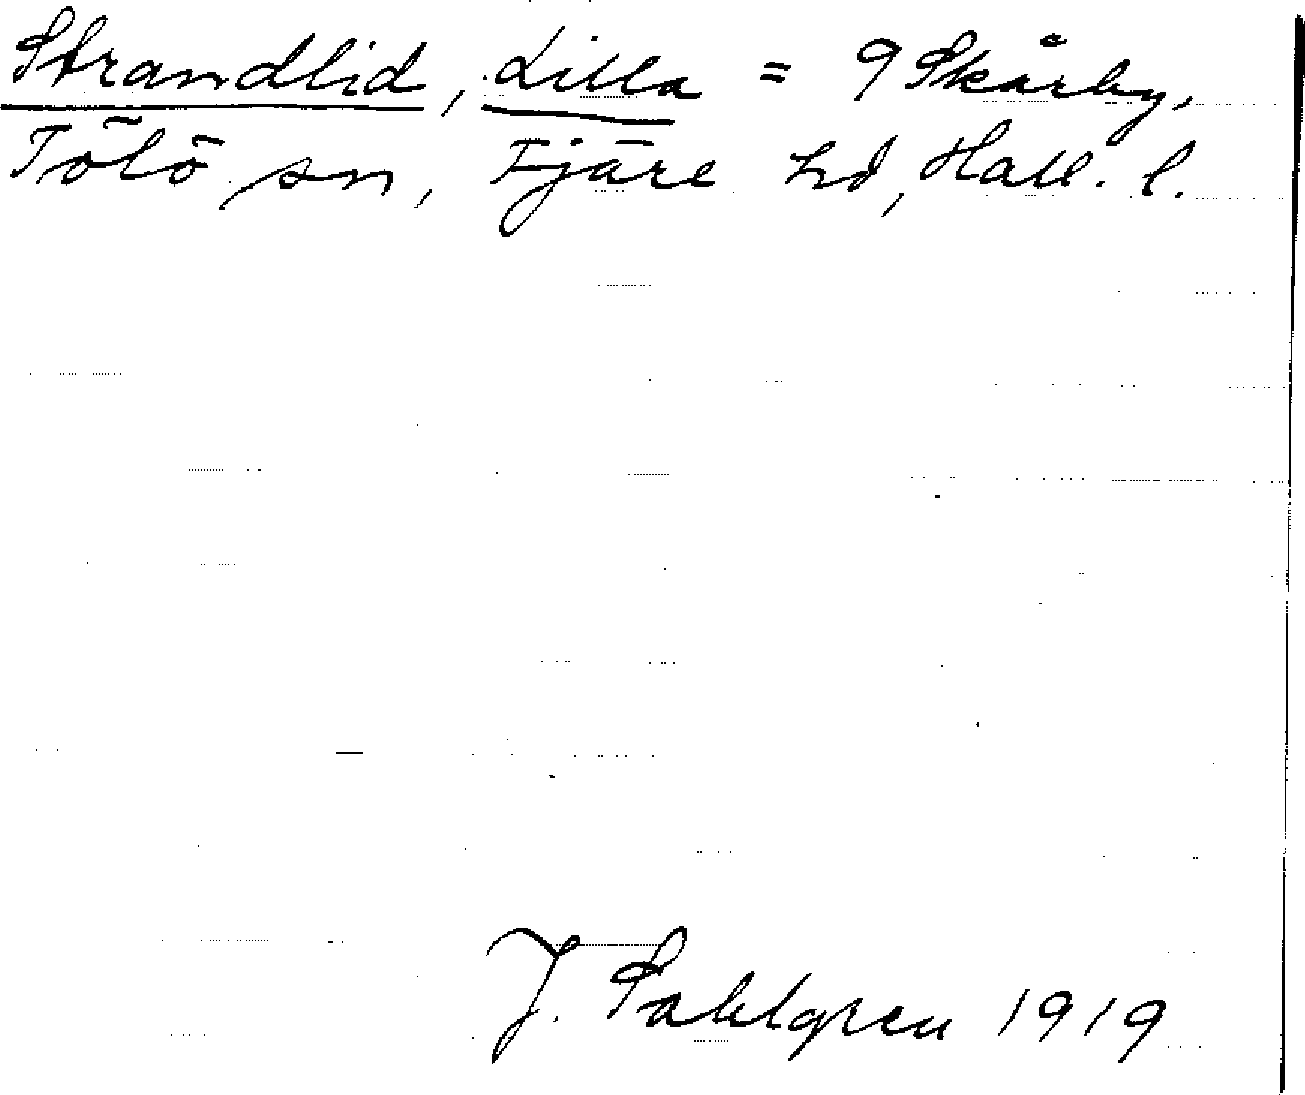 Strandlid, Lilla = 9 Skårby,
Tölö sn, Fjäre hd, Hall. l.
J. Sahlgren 1919